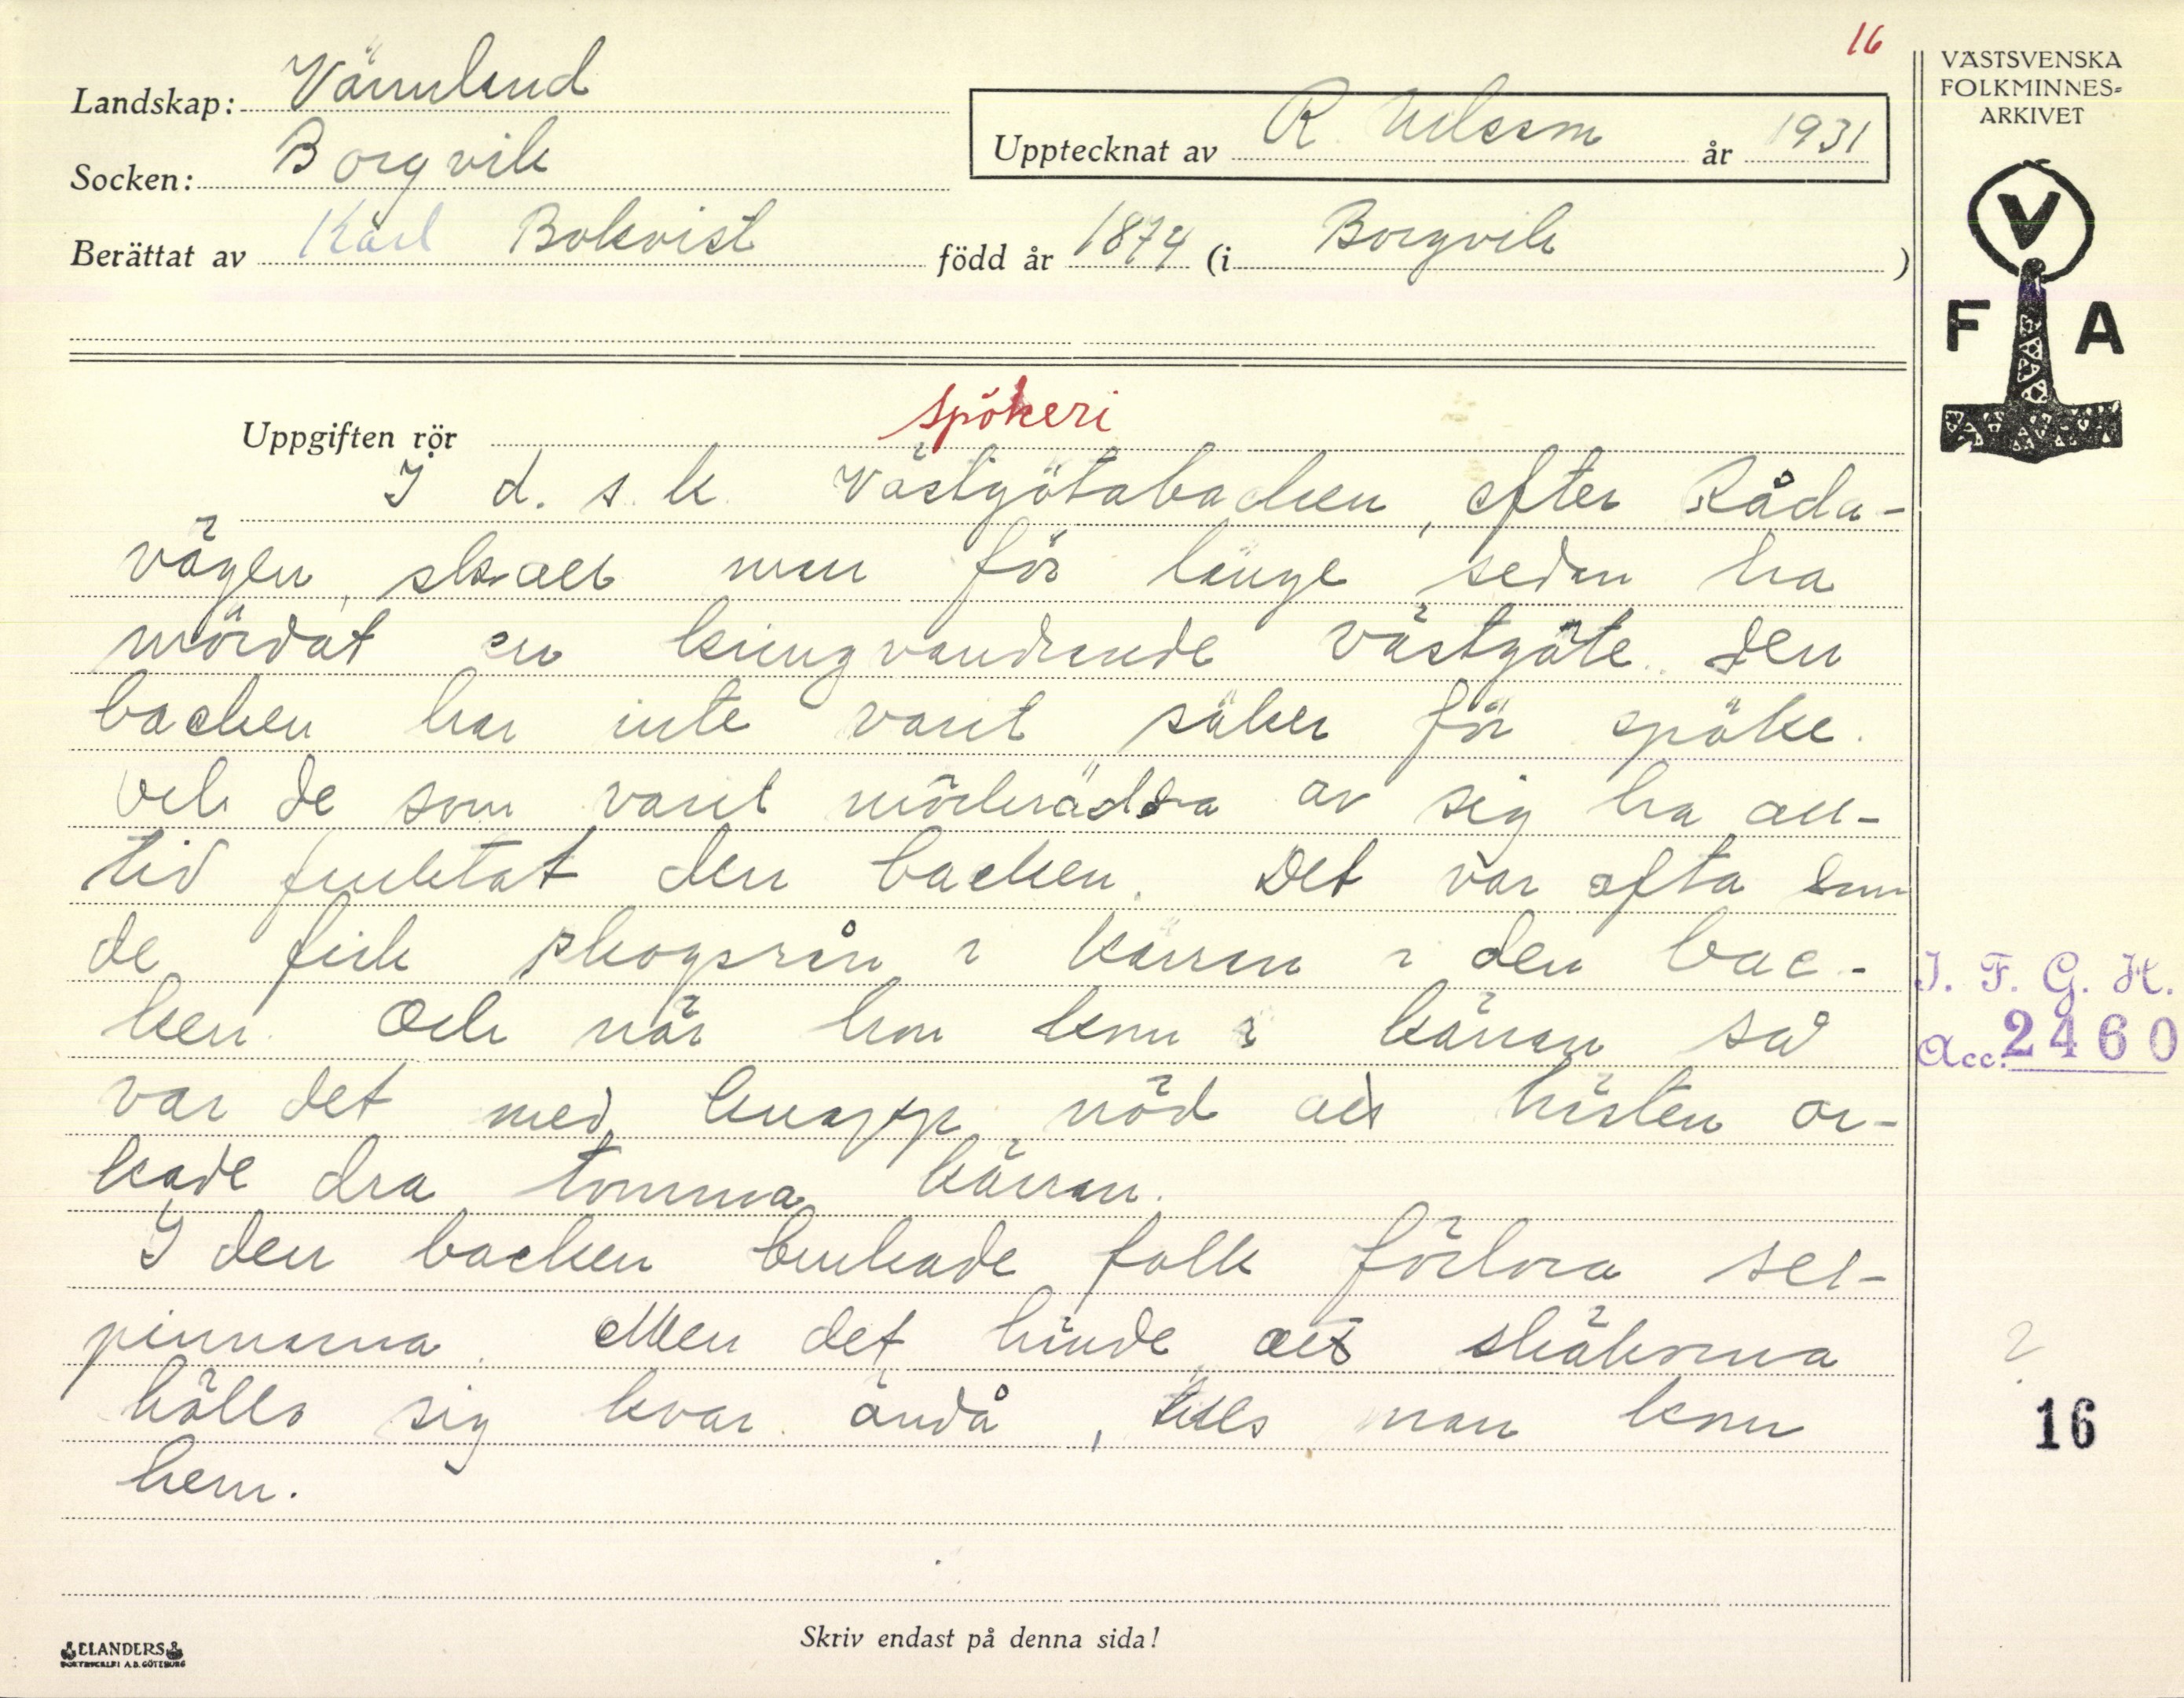 16
Landskap: Värmland
Socken: Borgvik
Upptecknat av R Nilsson år 1931
Berättat av Karl Bokvist född år 1874 (i Borgvik)
VÄSTSVENSKA
FOLKMINNES=
ARKIVET
V
F A
Uppgiften rör spökeri
I d. s. k. Västgötabacken, efter Råda-
vägen, skall man för länge sedan ha
mördat en kringvandrande västgöte. Den
backen har inte varit säker för spöke.
Och de som varit mörkrädda av sig ha all-
tid fruktat den backen. Det var ofta som
de fick skogsrån i kärran i den bac-
ken. Och när hon kom i kärran så
var det med knapp nöd att hästen or-
kade dra tomma kärran.
I den backen brukade folk förlora sel-
pinnarna. Men det hände att skäkorna
hölls sig kvar ändå, tills man kom
hem.
I. F. G. H.
Acc. 2460
?
16
Skriv endast på denna sida!
ELANDERS
BOKTRYCKERI A.B. GÖTEBORG